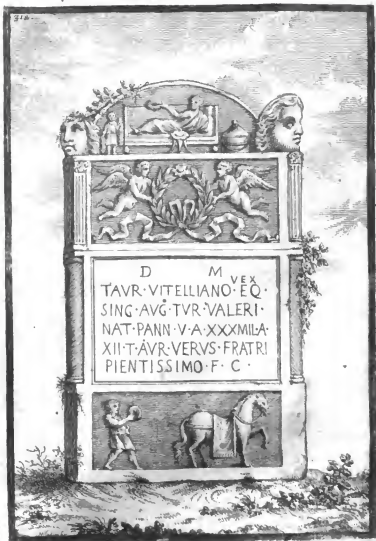 318
D M
TAVR · VITELLIANO · VEX EQ ·
SING · AVG · TVR · VALERI ·
NAT · PANN · V · A · XXXMIL · A ·
XII · T · AVR · VERVS · FRATRI
PIENTISSIMO · F · C ·